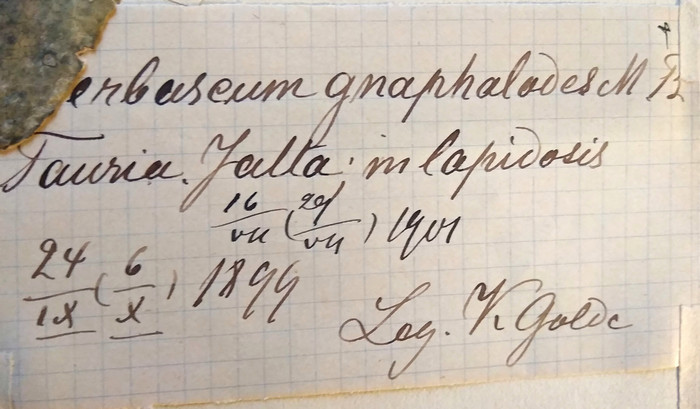 erbascum gnaphalodes M B
Tauria. Jalta. in lapidosis
16/VII (29/VII) 1901
24/IX (6/X) 1899
Leg. K Golde